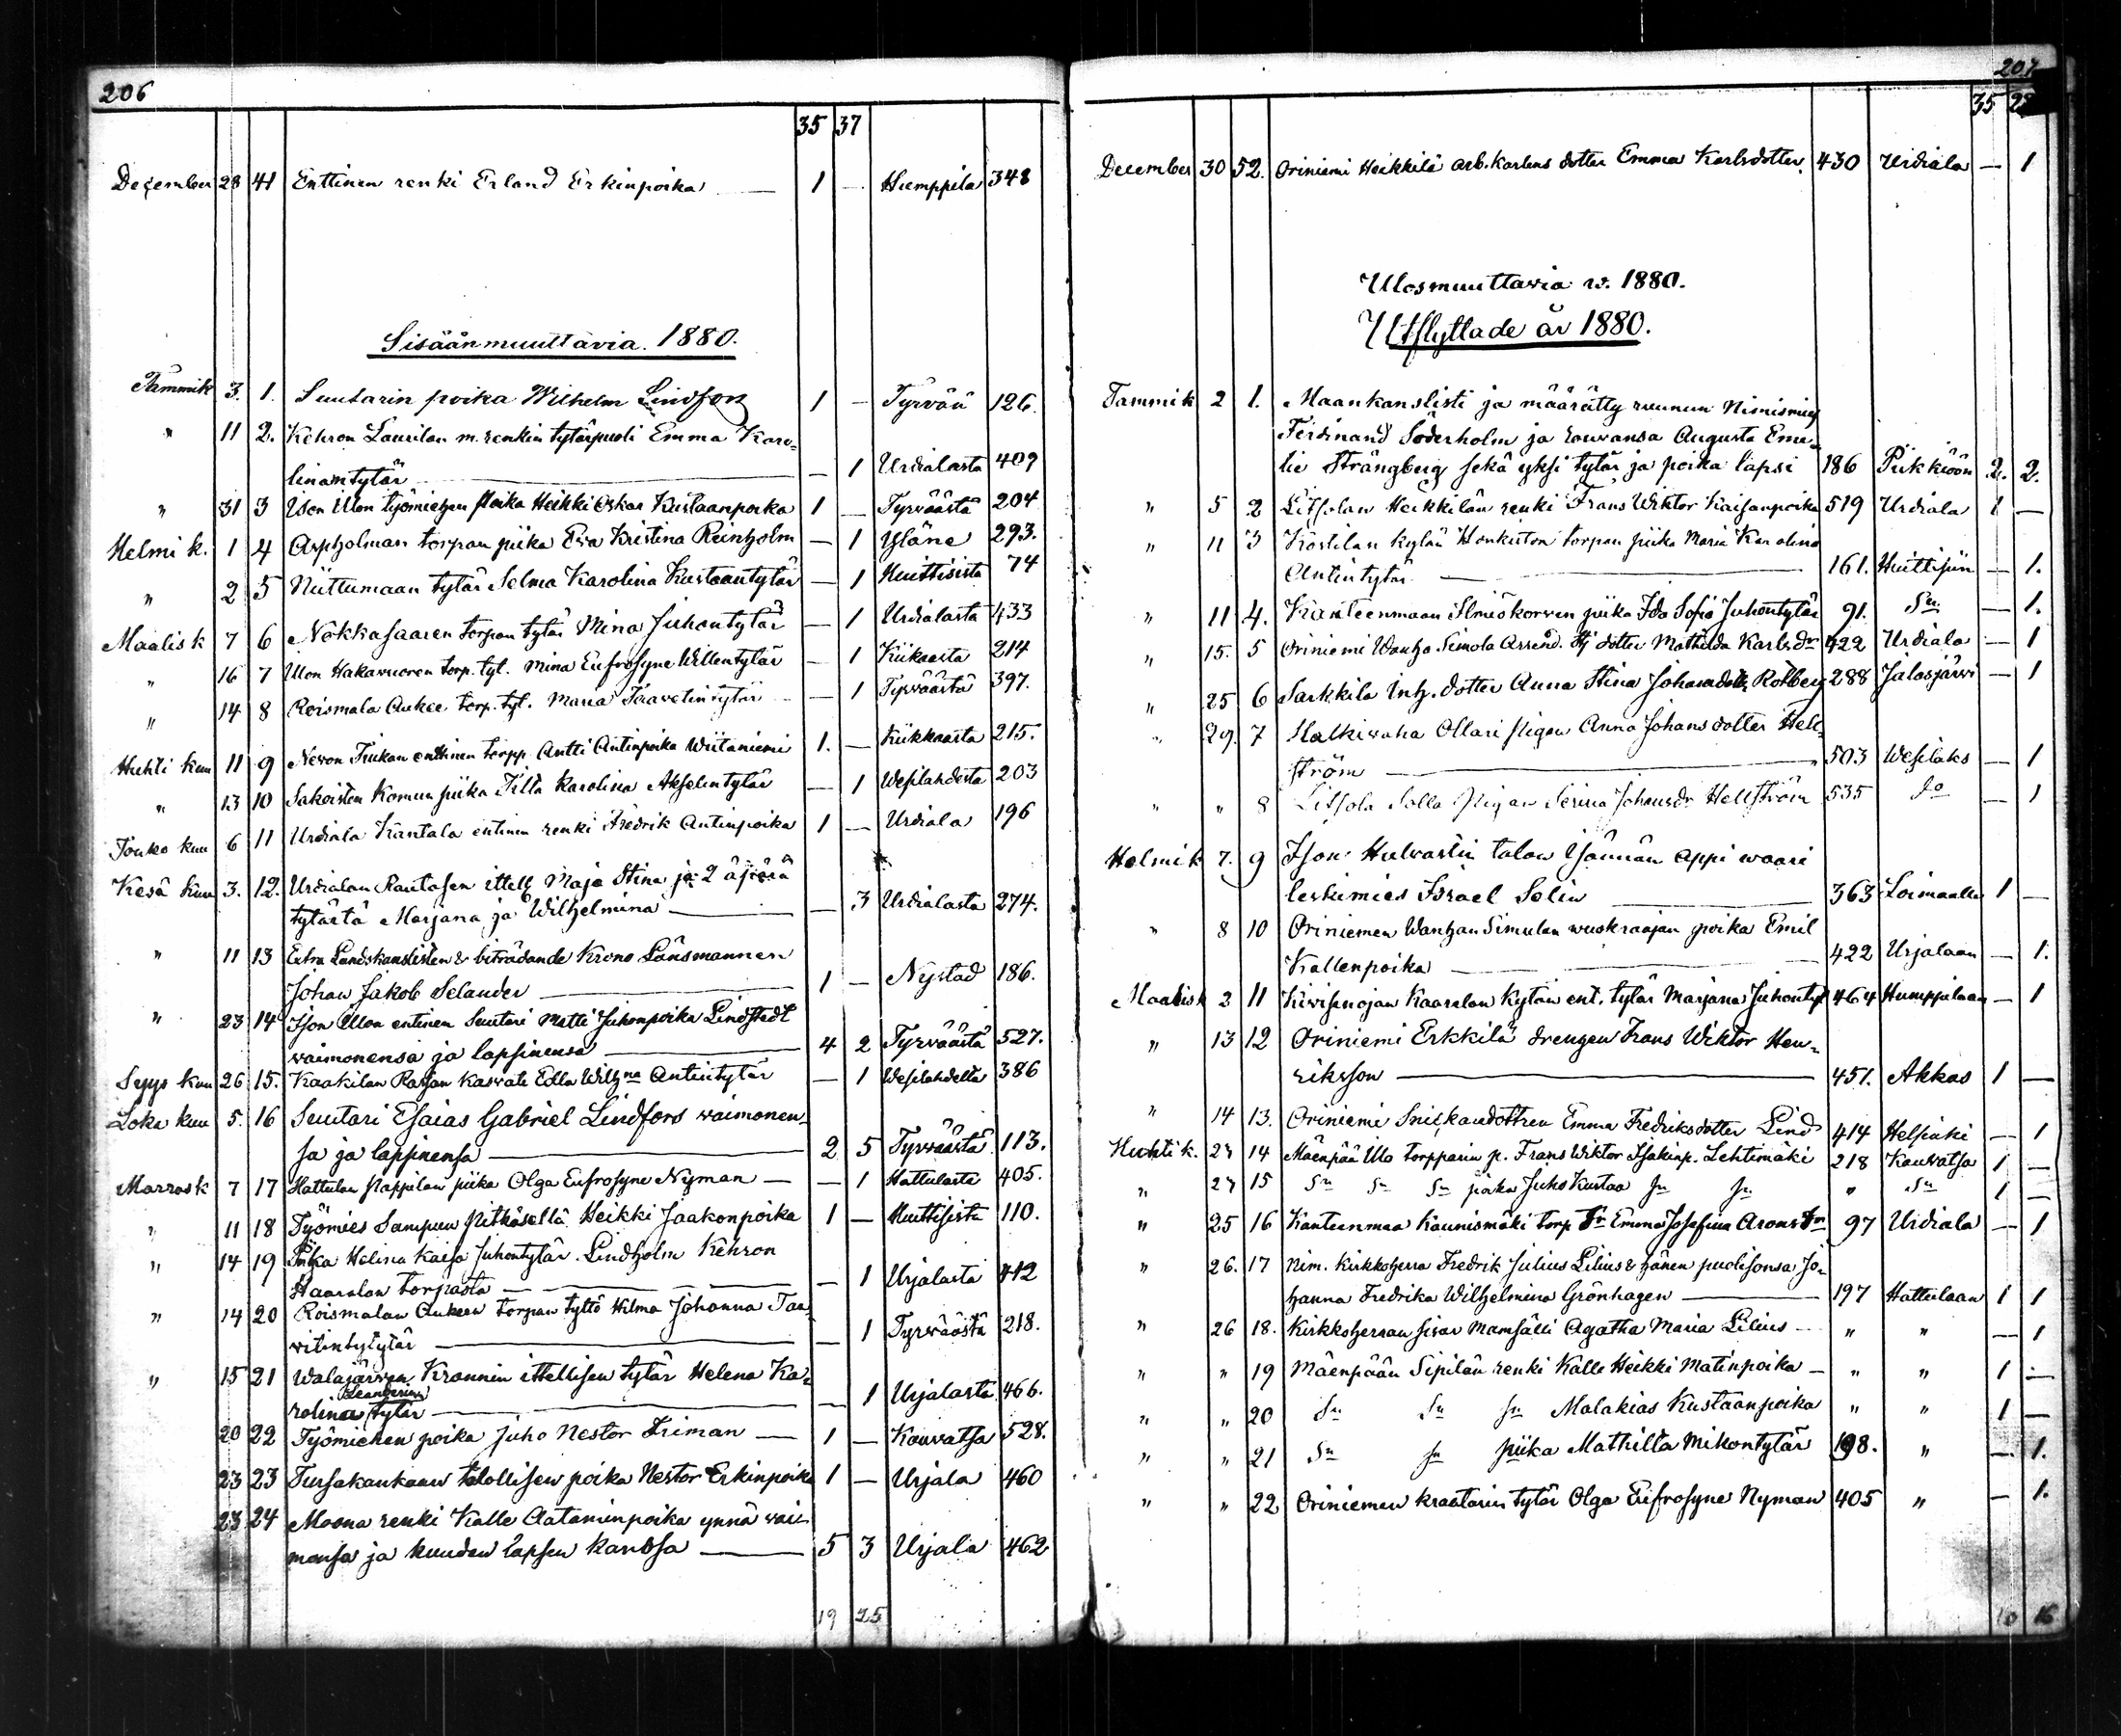 206
35 37
December 28 41 Enttinen renki Erland Erkinpoika — 1 — Humppila 348
Sisäänmuuttavia. 1880.
Tammik 3. 1. Suutarin poika Wilhelm Lindfors 1 — Tyrvää 126.
" 11 2. Kehron Laurilan m. renkin tytärpuoli Emma Karo-
linantytär — — 1 Urdialasta 409
" 31 3 Ison Ulon työmiehen poika Heikki Oskar Kustaanpoika 1 — Tyrväästä 204
Helmi k. 1 4 Aspholman torpan piika Eva Kristina Reinholm — 1 Yläne 293.
" 2 5 Niittumaan tytär Selma Karolina Kustaantytär — 1 Huittisista 74
Maalis k 7 6 Nokkasaaren torpan tytär Mina Juhontytär — 1 Urdialasta 433
" 16 7 Ulon Hakavuoren torp. tyt. Mina Eufrosyne Willentytär — 1 Kiikasta 214
" 14 8 Roismala Aukee torp. tyt. Maria Taavetintytär — 1 Tyrväästä 397.
Huhti kuu 11 9 Nevon Tiukan entinen torpp. Antti Antinpoika Wiitaniemi 1. — Kiikkasta 215.
" 13 10 Sakoisten Komun piika Tilta Karolina Akselintytär — 1 Wesilahdesta 203
Touko kuu 6 11 Urdiala Kantala entinen renki Fredrik Antinpoika 1 — Urdiala 196
Kesä kuu 3. 12. Urdialan Rautasen ittell. Maja Stina ja 2 äpärä
tytärtä Marjana ja Wilhelmina — — 3 Urdialasta 274.
" 11 13 Extra Landskanslisten & biträdande Krono Länsmannen
Johan Jakob Selander — 1 — Nystad 186.
" 23 14 Ison Ulon entinen Suutari Matti Juhonpoika Lindstedt
waimonensa ja lapsinensa — 4 2 Tyrväästä 527.
Syys kuu 26 15. Kaakilan Rassan Kasvati Edla Wilhna Antintytär — 1 Wesilahdelta 386
Loka kuu 5. 16 Suutari Esaias Gabriel Lindfors waimonen-
sa ja lapsinensa — 2 5 Tyrväästä 113.
Marrask 7 17 Hattulan Pappilan piika Olga Eufrosyne Nyman — — 1 Hattulasta 405.
" 11 18 Työmies Sampuu Pitkäseltä Heikki Jaakonpoika 1 — Huittisista 110.
" 14 19 Piika Helena Kaisa Juhontytär Lindholm Kehron
Haaralan torpasta — — 1 Urjalasta 412
" 14 20 Roismalan Aukeen torpan tyttö Hilma Johanna Taa-
vitintytytär — — 1 Tyrväästä 218.
" 15 21 Walajärven Krannin ittellisen tytär Helena Ka-
rolina tytär — — 1 Urjalasta 466.
20 22 Työmiehen poika Juho Nestor Friman — 1 — Kauvatsa 528.
23 23 Tursakankaan talollisen poika Nestor Erkinpoika 1 — Urjala 460
23 24 Moona renki Kalle Aataminpoika ynnä wai-
monsa ja kuuden lapsen kanssa — 5 3 Urjala 462
19 25
207
35
December 30 52. Oriniemi Heikkilä arb.karlens dotter Emma Karlsdotter. 430 Urdiala — 1
Ulosmuuttavia w. 1880.
Utflyttade år 1880.
Tammik 2 1. Maankanslisti ja määrätty ruunun Nimismies
Ferdinand Söderholm ja rouvansa Augusta Eme-
lie Strångberg sekä yksi tytär ja poika lapsi 186 Piikkiöön 2. 2.
" 5 2 Litsolan Heikkilän renki Frans Wiktor Kaisanpoika 519 Urdiala 1 —
" 11 3 Köstilän kylän Honkiston torpan piika Maria Karolina
Antintytär — 161. Huittisiin — 1.
" 11 4. Kanteenmaan Ilmiökorven piika Ida Sofia Juhontytär 91. Sn — 1.
" 15. 5 Oriniemi Wanha Simola Arrend. dotter Mathilda Karlsdr 422 Urdiala — 1
" 25 6 Sarkkila Inh. dotter Anna Stina Johansdotter Rotberg 288 Jalasjärvi — 1
" 29. 7 Halkivaha Ollari pigan Anna Johansdotter Hell-
ström — 503 Wesilaks — 1
" " 8 Litsola Salla Pigan Serina Johansdr Hellström 535 Do — 1
Helmik 7. 9 Ison Hulvastin talon Isännän appi waari
leskimies Israel Solin — 363 Loimaalle 1 —
" 8 10 Oriniemen Wanhan Simulan wuokraajan poika Emil
Kallenpoika — 422 Urjalaan — 1.
Maalisk 2 11 Kiwisenojan Kaaralan Kytän ent. tytär Marjana Juhontyt 464 Humppilaan — 1
" 13 12 Oriniemi Erkkilä drengen Frans Wiktor Hen-
riksson — 451. Akkas 1 —
" 14 13. Oriniemi Snickaredottren Emma Fredriksdotter Lind 414 Helsinki — 1
Huhtik. 23 14 Mäenpää Ulo torpparin p. Frans Wiktor Isakinp. Lehtimäki 218 Kauvatsa 1 —
" 23 15 Sn Sn Sn poika Juho Kustaa Sn Sn " Sn 1 —
" 25 16 Kanteenmaa Kaunismäki torp tr Emma Josefina Arons tr 97 Urdiala — 1
" 26. 17 Nim. Kirkkoherra Fredrik Julius Lilius & hänen puolisonsa Jo-
hanna Fredrika Wilhelmina Grönhagen — 197 Hattulaan 1 1
" 26 18. Kirkkoherran sisar Mamsälli Agatha Maria Lilius — " " — 1
" " 19 Mäenpään Sipilän renki Kalle Heikki Matinpoika — " " 1 —
" " 20 Sn Sn Sn Malakias Kustaanpoika " " 1 —
" " 21 Sn Sn piika Mathilta Mikontytär 198. " — 1.
" " 22 Oriniemen kraatarin tytär Olga Eufrosyne Nyman 405 " — 1.
10 16